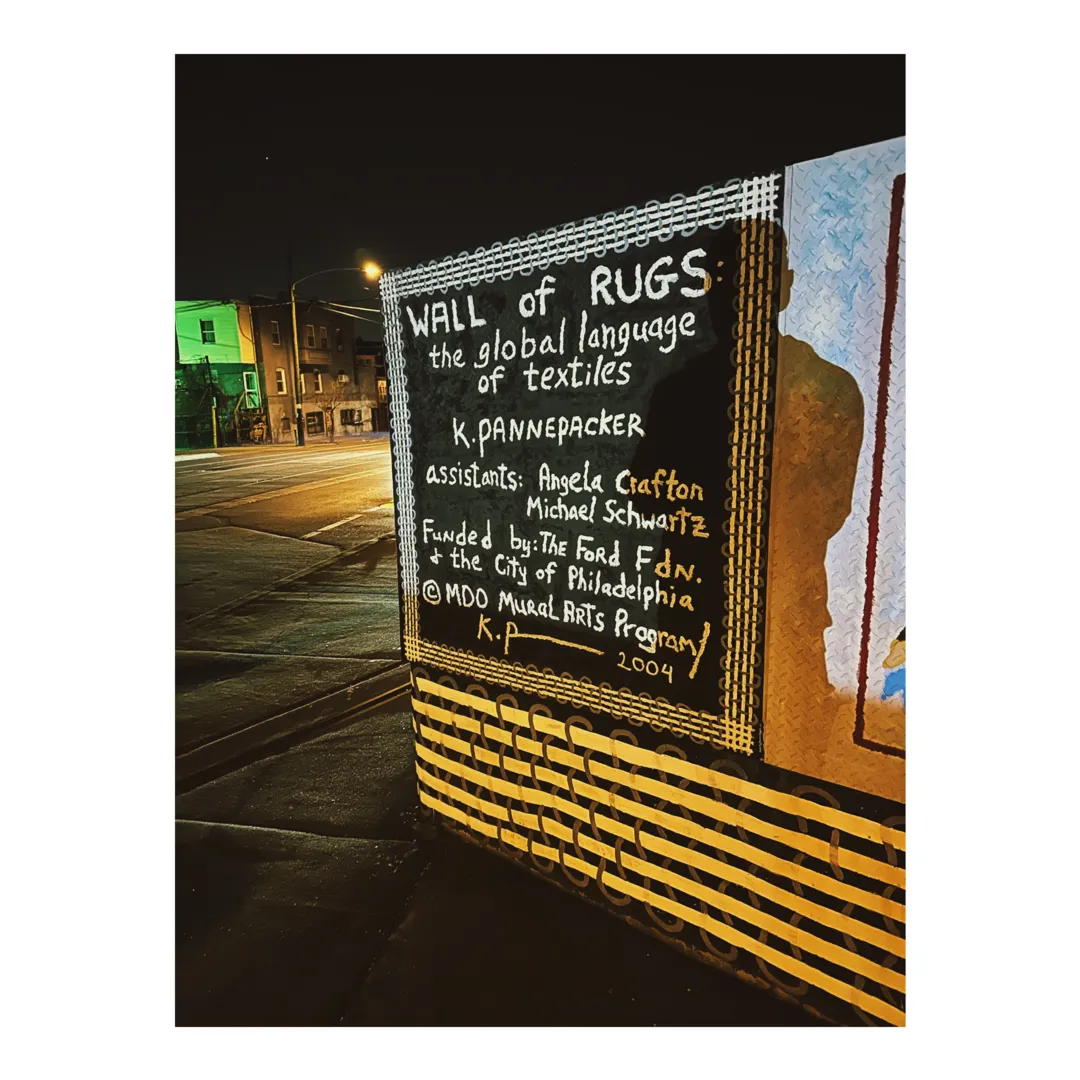 WALL of RUGS:
the global language
of textiles
K. PANNEPACKER
assistants: Angela Crafton
Michael Schwartz
Funded by: The Ford Fdn.
& the City of Philadelphia
© MDO Mural Arts Program/
K.P
2004